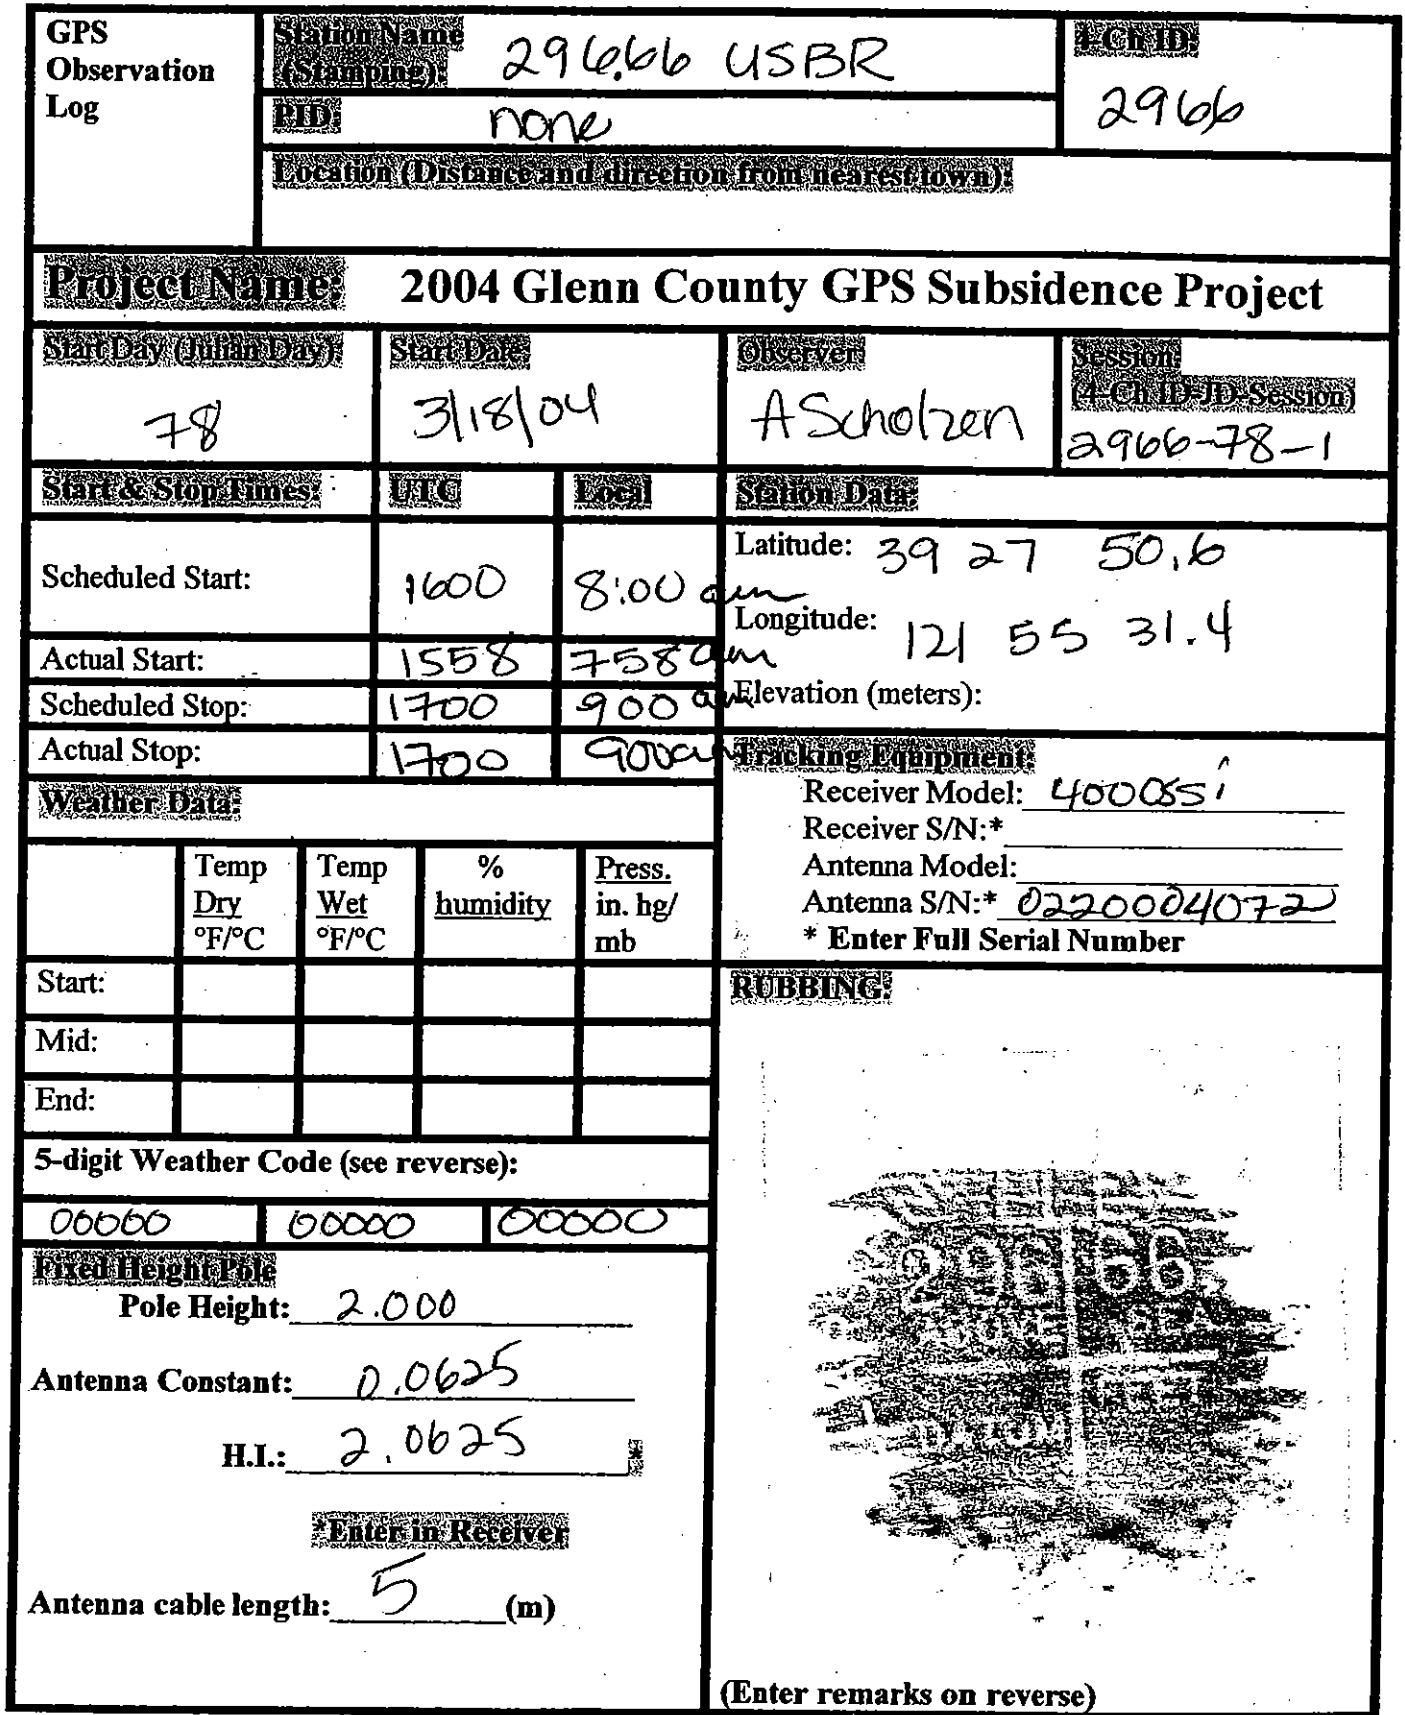 GPS
Observation
Log
Station Name
(Stamping): 296.66 USBR
4-Ch ID:
2966
PID: none
Location (Distance and direction from nearest town):
Project Name: 2004 Glenn County GPS Subsidence Project
Start Day (Julian Day):
78
Start Date:
3/18/04
Observer:
A Scholzen
Session:
(4-Ch ID-JD-Session)
2966-78-1
Start & Stop Times: UTC Local
Scheduled Start: 1600 8:00 am
Actual Start: 1558 758 am
Scheduled Stop: 1700 900 am
Actual Stop: 1700 900am
Station Data:
Latitude: 39 27 50.6
Longitude: 121 55 31.4
Elevation (meters):
Tracking Equipment:
Receiver Model: 4000SSi
Receiver S/N:*
Antenna Model:
Antenna S/N:* 0220004072
* Enter Full Serial Number
Weather Data:
Temp Dry °F/°C
Temp Wet °F/°C
% humidity
Press. in. hg/ mb
Start:
Mid:
End:
5-digit Weather Code (see reverse):
00000 00000 00000
Fixed Height Pole
Pole Height: 2.000
Antenna Constant: 0.0625
H.I.: 2.0625 *
*Enter in Receiver
Antenna cable length: 5 (m)
RUBBING:
(Enter remarks on reverse)